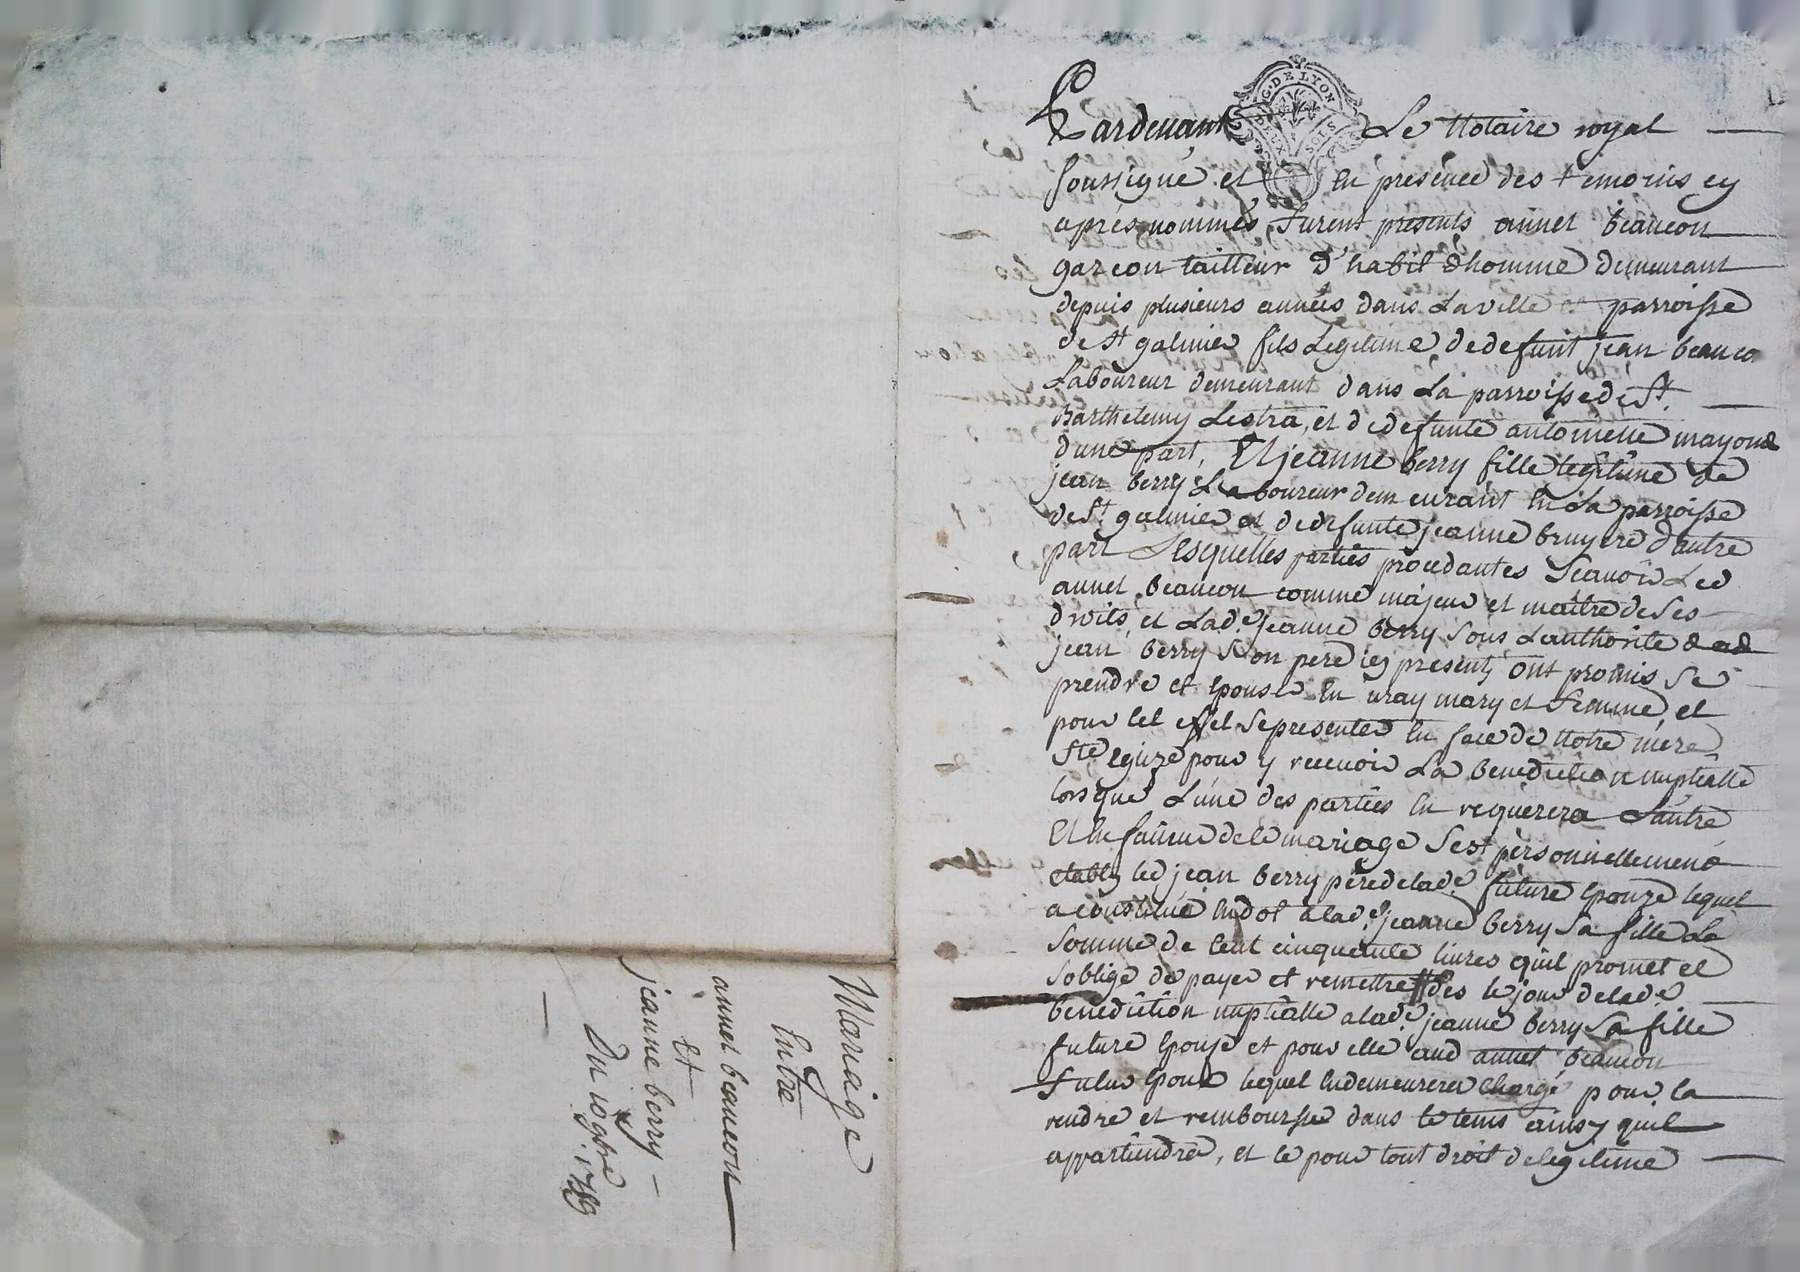 G. DE LYON
DEUX SOLS
Pardevant Le Notaire royal
soussigné et en présence des temoins cy
après nommés, furent presents annet beaucon
garcon tailleur d'habit d'homme demeurant
depuis plusieurs années dans La ville et parroisse
de St galmier fils Legitime de defunt jean beauco
Laboureur demeurant dans La parroisse de St.
Barthelemy Lestra, et de defunte antoinette mayond
dune part, Et jeanne berry fille legitime de
jean berry Laboureur demeurant en La parroisse
de St galmier et de defunte jeanne bruyere d'autre
part Lesquelles parties procedantes Scavoir Led
annet beaucon comme majeur et maitre de Ses
droits, et Lade. jeanne berry sous L'authorité dud
jean berry Son pere icy present, ont promis se
prendre et epouser en vray mary et femme, et
pour cet effet se presenter en face de Notre mere
Ste eglize pour y recevoir La benediction nuptialle
lorsque L'une des parties en requerera L'autre
Et en faveur de ce mariage Sest personnellement
etably led jean berry pere de lade. future epouze lequel
a constitué en dot a lade. jeanne berry Sa fille La
Somme de cent cinquante livres quil promet et
soblige de payer et remettre des le jour de lade
benediction nuptialle a lade. jeanne berry Sa fille
future epouse et pour elle aud annet beaucon
futur epoux lequel en demeurera chargé pour la
rendre et rembourser dans le tems ainsy quil
appartiendra, et ce pour tout droit de legitime
Mariage
Entre
annet beaucon
Et
jeanne berry
Du 10 9bre 1789